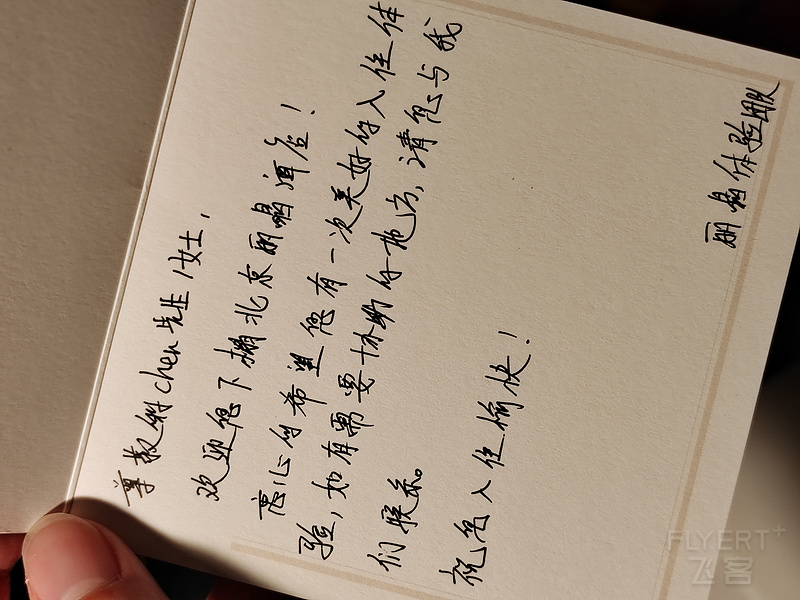 尊敬的chen先生/女士，
欢迎您下榻北京丽晶酒店！
衷心的希望您有一次美好的入住体
验，如有需要协助的地方，请您与我
们联系。
祝您入住愉快！
丽晶体验团队
FLYERT+
飞客